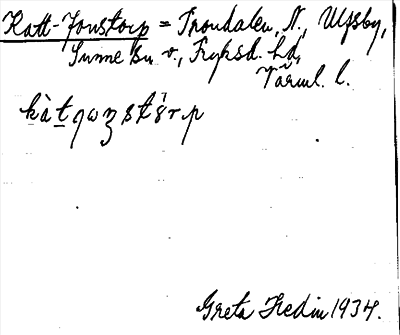 Katt-Jonstorp = Trondalen, N., Ulfsby,
Sunne sn v., Fryksd. hd,
Värml. l.
Greta Hedin 1934.